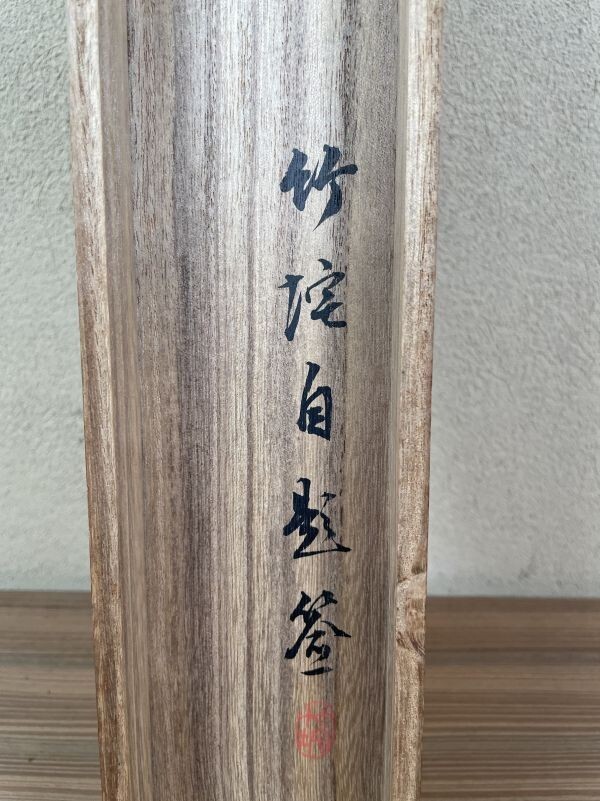 竹坨自題签